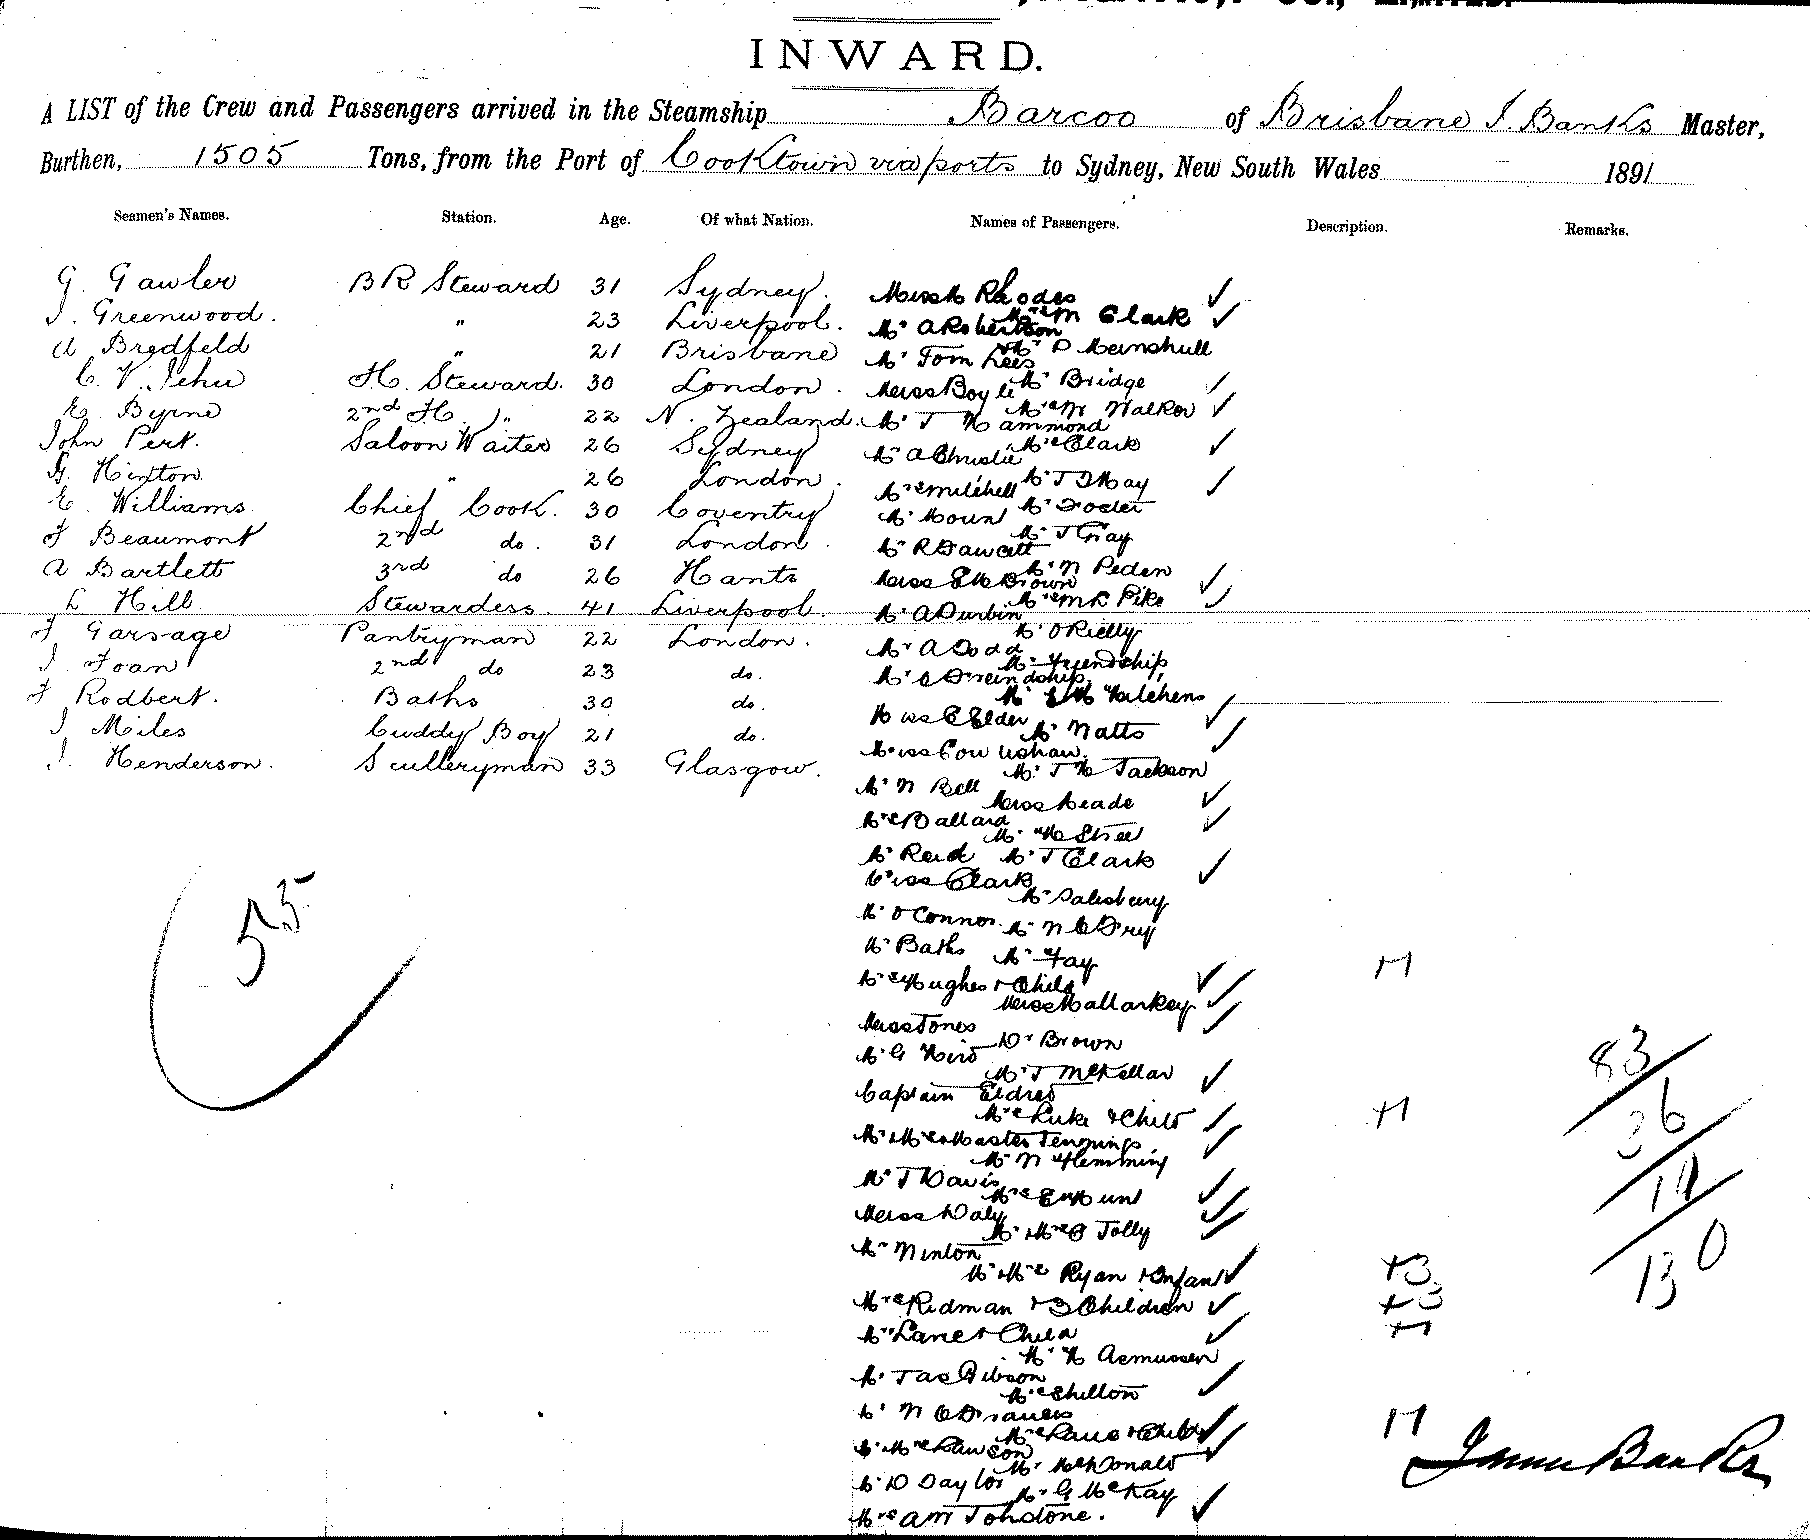 INWARD.
A LIST of the Crew and Passengers arrived in the Steamship Barcoo of Brisbane J. Banks Master,
Burthen, 1505 Tons, from the Port of Cooktown via ports to Sydney, New South Wales 1891
Seamen's Names. Station. Age. Of what Nation. Names of Passengers. Description. Remarks.
G. Gawler B R Steward 31 Sydney. Miss M Rhodes ✓
J. Greenwood. " 23 Liverpool. Mrs M Clark ✓
Mr A Robertson
A Bredfeld " 21 Brisbane Mr P Meinshull
Mr Tom Lees
C. V. Jehu H. Steward. 30 London. Mr Bridge
Miss Boyle ✓
E. Byrne 2nd H. " 22 N. Zealand. Mrs M Walker ✓
Mr T H Hammond
John Pert. Saloon Waiter 26 Sydney Mrs Clark ✓
Mr A Christie
G. Hinton " 26 London. Mr T D May
Mrs Mitchell ✓
E. Williams Chief Cook. 30 Coventry Mr Foster
Mr Mount
F Beaumont 2nd do. 31 London. Mr J Gray
Mr R Fawcett
A Bartlett 3rd do 26 Hants Mr N Peden
Miss E M Brown ✓
L Hill Stewardess. 41 Liverpool. Mrs M R Pike ✓
Mr A Durbin
F Garsage Pantryman 22 London. Mr O Rielly
Mr A Dodd
J. Foan 2nd do 23 do. Mr Friendship
F Rodbert. Baths 30 do. Mr E H Kitchens
Miss E Elder ✓
J Miles Cuddy Boy 21 do. Mr Natts
✓
J. Henderson. Sculleryman 33 Glasgow. Mr T H Jackson
Mr N Bell
Miss Meade ✓
Mrs Ballard ✓
Mr H Street
Mr Reid Mr J Clark
Miss Clark ✓
Mr Salisbury
Mr O Connor Mr N C Fry
Mr Baths Mr Fay
Mrs Hughes & Child ✓ +1
Miss Mallarkey ✓
Miss Jones ✓
Dr Brown
Mr G Kird
Mr J McKellar
Captain Eldred
Mrs Luke & Child ✓ +1
Mr Mrs & Master Jennings ✓
Mr N Flemming
Mr J Davis
Mrs E Hunt ✓
Miss Daly ✓
Mr & Mrs O Jolly ✓
Mr Ninton
Mr & Mrs Ryan & Infant ✓
Mrs Ridman & 3 Children ✓ +3
Mrs Lane & Child ✓ +1
Mr H Asmussen
Mr Jas Gibson
Mrs Shilton ✓
Mr N C Francis
& Child ✓ +1
Mr & Mrs Lawson ✓
Mr McDonald
Mr D Daylor
Mr G McKay
Mrs A M Johnstone. ✓
55
83
36
11
130
James Banks